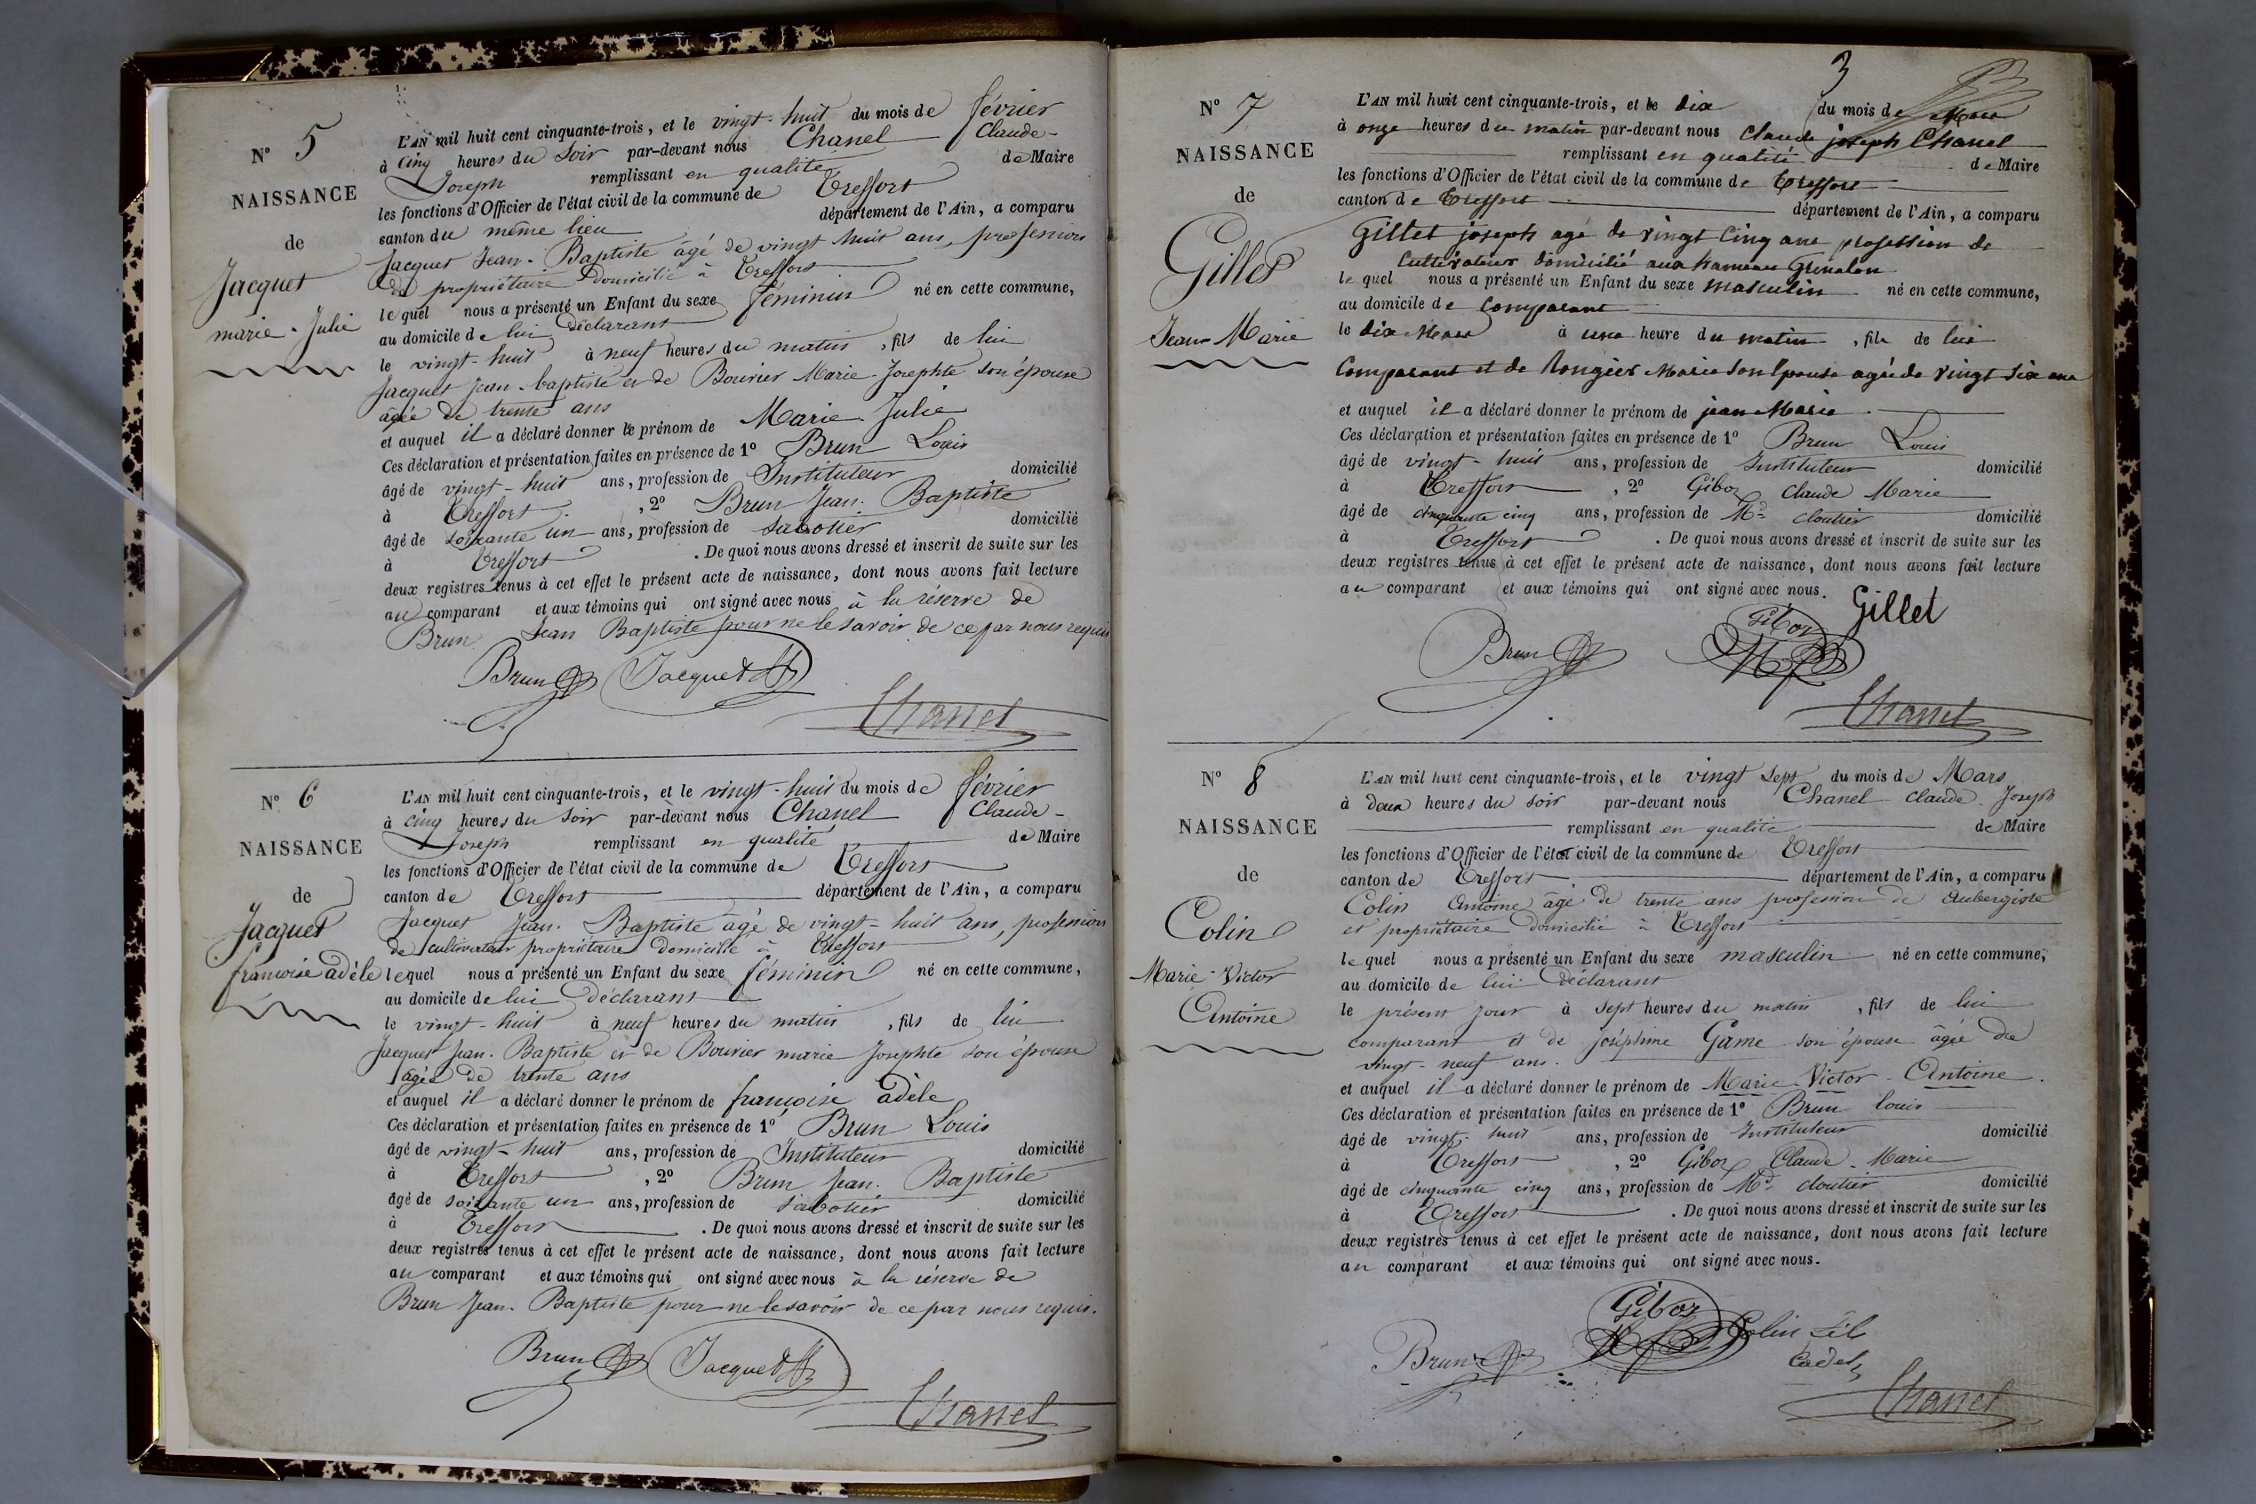 N° 5
NAISSANCE
de
Jacquet
marie-Julie
L'AN mil huit cent cinquante-trois, et le vingt-huit du mois de février
à cinq heures du soir par-devant nous Chanel Claude-
Joseph remplissant en qualité de Maire
les fonctions d'Officier de l'état civil de la commune de Treffort
canton du même lieu département de l'Ain, a comparu
Jacquet Jean-Baptiste âgé de vingt huit ans, profession
de propriétaire domicilié à Treffort
lequel nous a présenté un Enfant du sexe féminin né en cette commune,
au domicile de lui déclarant
le vingt-huit à neuf heures du matin, fils de lui
Jacquet Jean-baptiste et de Bouvier Marie-Josephte son épouse
âgée de trente ans
et auquel il a déclaré donner le prénom de Marie Julie
Ces déclaration et présentation faites en présence de 1° Brun Louis
âgé de vingt-huit ans, profession de Instituteur domicilié
à Treffort, 2° Brun Jean-Baptiste
âgé de soixante un ans, profession de sabotier domicilié
à Treffort. De quoi nous avons dressé et inscrit de suite sur les
deux registres tenus à cet effet le présent acte de naissance, dont nous avons fait lecture
au comparant et aux témoins qui ont signé avec nous à la réserve de
Brun Jean Baptiste pour ne le savoir de ce par nous requis
Brun Jacquet
Chanel
N° 6
NAISSANCE
de
Jacquet
francoise adèle
L'AN mil huit cent cinquante-trois, et le vingt-huit du mois de février
à cinq heures du soir par-devant nous Chanel Claude-
Joseph remplissant en qualité de Maire
les fonctions d'Officier de l'état civil de la commune de Treffort
canton de Treffort département de l'Ain, a comparu
Jacquet Jean-Baptiste âgé de vingt-huit ans, profession
de cultivateur propriétaire domicilié à Treffort
lequel nous a présenté un Enfant du sexe féminin né en cette commune,
au domicile de lui déclarant
le vingt-huit à neuf heures du matin, fils de lui
Jacquet Jean-Baptiste et de Bouvier marie Josephte son épouse
âgée de trente ans
et auquel il a déclaré donner le prénom de françoise adèle
Ces déclaration et présentation faites en présence de 1° Brun Louis
âgé de vingt-huit ans, profession de Instituteur domicilié
à Treffort, 2° Brun Jean-Baptiste
âgé de soixante un ans, profession de sabotier domicilié
à Treffort. De quoi nous avons dressé et inscrit de suite sur les
deux registres tenus à cet effet le présent acte de naissance, dont nous avons fait lecture
au comparant et aux témoins qui ont signé avec nous à la réserve de
Brun Jean-Baptiste pour ne le savoir de ce par nous requis.
Brun Jacquet
Chanel
3
N° 7
NAISSANCE
de
Gillet
Jean-Marie
L'AN mil huit cent cinquante-trois, et le dix du mois de Mars
à onze heures du matin par-devant nous Claude joseph Chanel
remplissant en qualité de Maire
les fonctions d'Officier de l'état civil de la commune de Treffort
canton de Treffort département de l'Ain, a comparu
Gillet joseph agé de vingt cinq ans profession de
Cultivateur domicilié aux hameau
lequel nous a présenté un Enfant du sexe masculin né en cette commune,
au domicile de Comparant
le dix Mars à une heure du matin, fils de lui
Comparant et de Rongier Marie son Epouse agée de vingt six ans
et auquel il a déclaré donner le prénom de jean Marie
Ces déclaration et présentation faites en présence de 1° Brun Louis
âgé de vingt-huit ans, profession de Instituteur domicilié
à Treffort, 2° Giboz Claude Marie
âgé de cinquante cinq ans, profession de Md cloutier domicilié
à Treffort. De quoi nous avons dressé et inscrit de suite sur les
deux registres tenus à cet effet le présent acte de naissance, dont nous avons fait lecture
au comparant et aux témoins qui ont signé avec nous.
Gillet
Brun Giboz
Chanel
N° 8
NAISSANCE
de
Colin
Marie-Victor
Antoine
L'AN mil huit cent cinquante-trois, et le vingt sept du mois de Mars
à deux heures du soir par-devant nous Chanel Claude-Joseph
remplissant en qualité de Maire
les fonctions d'Officier de l'état civil de la commune de Treffort
canton de Treffort département de l'Ain, a comparu
Colin Antoine âgé de trente ans profession de Aubergiste
et propriétaire domicilié à Treffort
lequel nous a présenté un Enfant du sexe masculin né en cette commune,
au domicile de lui déclarant
le présent jour à sept heures du matin, fils de lui
comparant et de joséphine Game son épouse âgée de
vingt-neuf ans.
et auquel il a déclaré donner le prénom de Marie-Victor-Antoine.
Ces déclaration et présentation faites en présence de 1° Brun louis
âgé de vingt-huit ans, profession de Instituteur domicilié
à Treffort, 2° Giboz Claude-Marie
âgé de cinquante cinq ans, profession de Md cloutier domicilié
à Treffort. De quoi nous avons dressé et inscrit de suite sur les
deux registres tenus à cet effet le présent acte de naissance, dont nous avons fait lecture
au comparant et aux témoins qui ont signé avec nous.
Giboz
Brun Colin fils
Cadet
Chanel